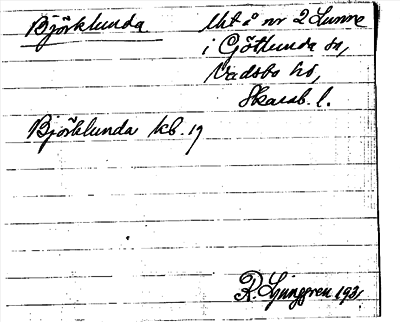 Björklunda Utå nr 2 Lunne
i Götlunda sn,
Vadsbo hd,
Skarab. l.
Björklunda kb. 19
R. Ljunggren 193